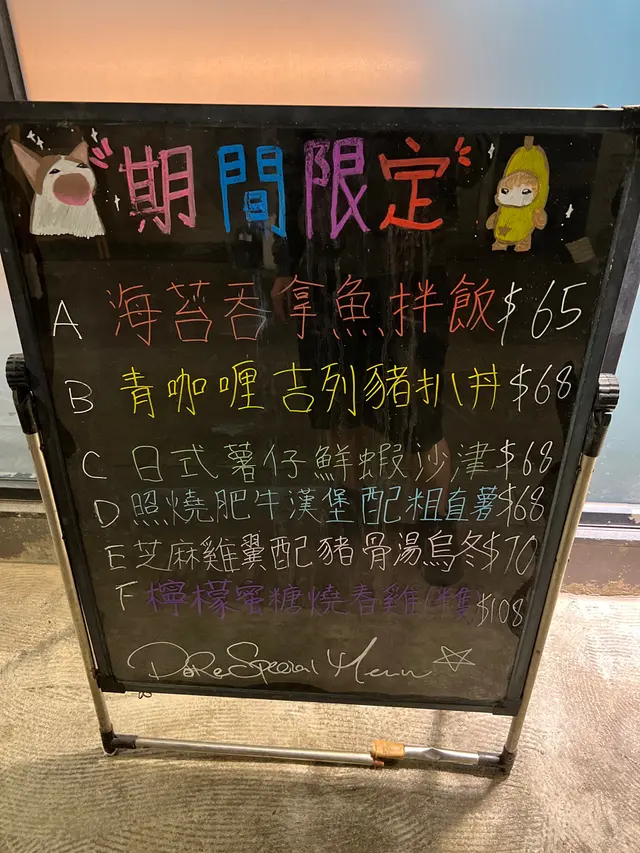 期間限定
A 海苔吞拿魚拌飯 $65
B 青咖喱吉列豬扒丼 $68
C 日式薯仔鮮蝦沙津 $68
D 照燒肥牛漢堡配粗直薯 $68
E 芝麻雞翼配豬骨湯烏冬 $70
F 檸檬蜜糖燒春雞(1隻) $108
Special Menu